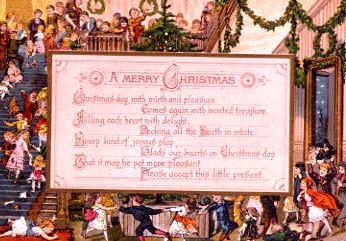 A MERRY CHRISTMAS
Christmas-day with mirth and pleasure
Comes again with wonted treasure,
Filling each heart with delight,
Decking all the Earth in white.
Every kind of joyous play
Glads our hearts on Christmas day
That it may be yet more pleasant
Please accept this little present.